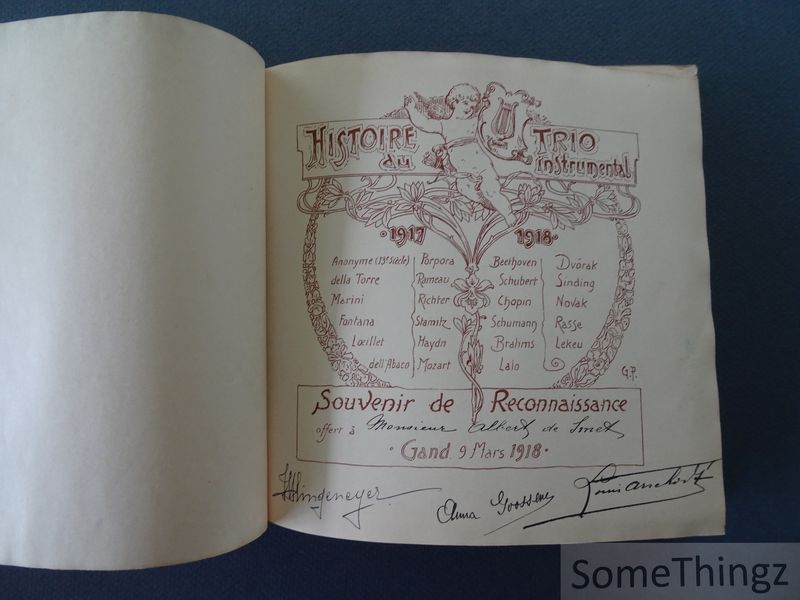 HISTOIRE du TRIO instrumental
1917 1918
Anonyme (13e Siècle)
della Torre
Marini
Fontana
Lœillet
dell'Abaco
Porpora
Rameau
Richter
Stamitz
Haydn
Mozart
Beethoven
Schubert
Chopin
Schumann
Brahms
Lalo
Dvorak
Sinding
Novak
Rasse
Lekeu
G.P.
Souvenir de Reconnaissance
offert à Monsieur Albert de Smet
Gand 9 Mars 1918
Anna Goossens
SomeThingz